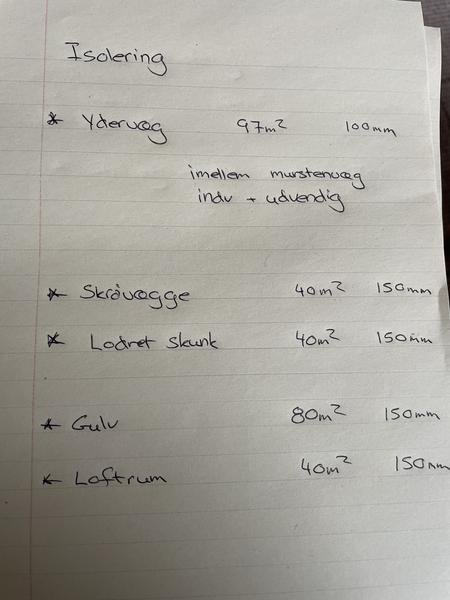 Isolering
* Ydervæg 97m² 100mm
imellem murstenvæg
indv + udvendig
* Skråvægge 40m² 150mm
* Lodret skunk 40m² 150mm
* Gulv 80m² 150mm
* Loftrum 40m² 150mm